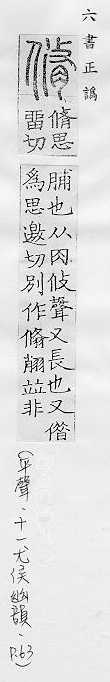 六書正譌
脩
脩思
畱切
脯也从肉攸聲又長也又借
為思邀切別作翛竝非
(平聲‧十一尤侯幽韻‧P.63)